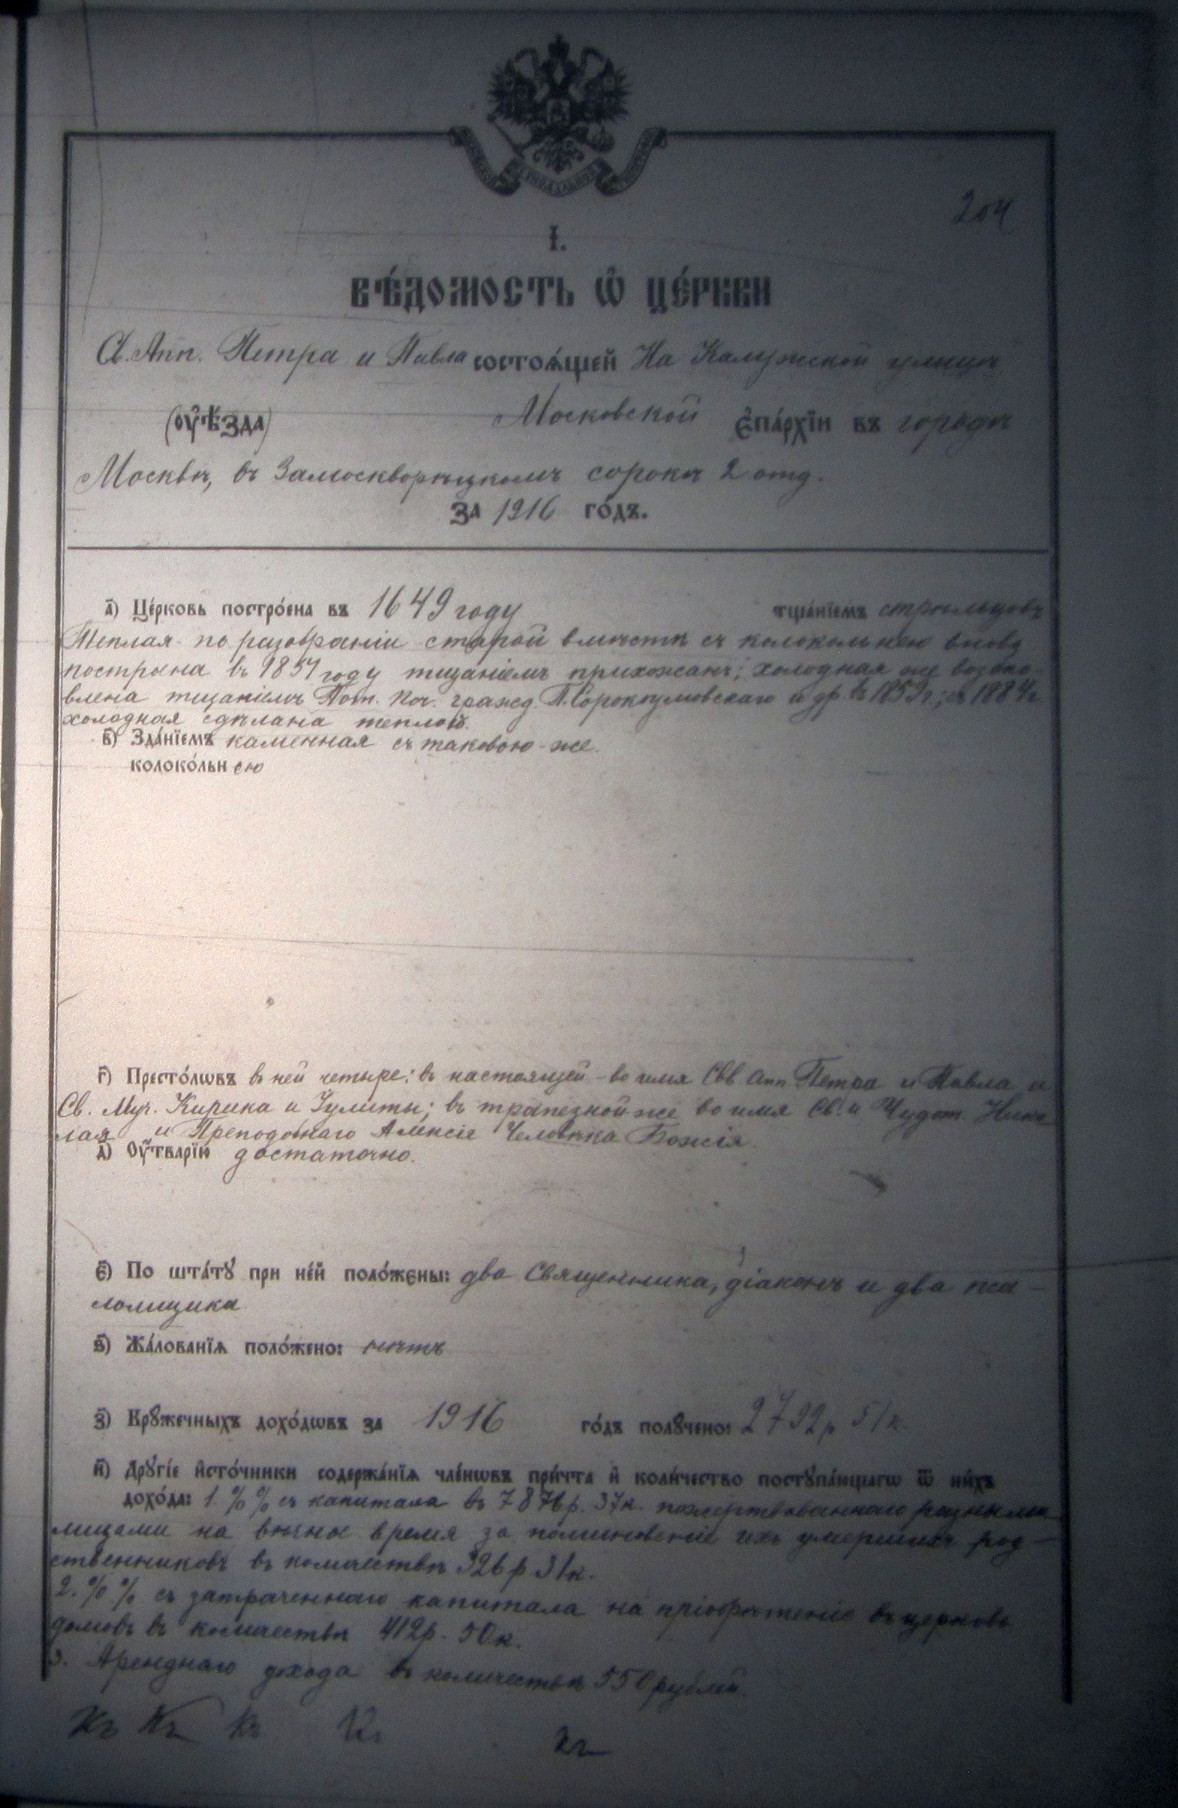 204
I.
ВѢ́ДОМОСТЬ Ѡ҆ ЦЕ́РКВИ
Св. Апп. Петра и Павла состоѧ́щїей На Калужской улицѣ
(оу҆ѣ́зда) Московской є҆па́рхїи въ городѣ
Москвѣ, въ Замоскворѣцкомъ сорокѣ 2 отд.
за 1916 го́дъ.
а҃) Це́рковь постро́ена въ 1649 году тща́нїемъ стрѣльцовъ
Теплая по разобраніи старой вмѣстѣ съ колокольнею вновь
построена въ 1857 году тщаніемъ прихожанъ; холодная же возоб-
влена тщаніемъ Пот. Поч. гражд. П. Сорокоумовскаго и др. въ 1859 г.; въ 1884 г.
холодная сдѣлана теплою.
в҃) Зда́нїемъ каменная съ таковою-же
колоко́льн ею
г҃) Престо́лѡвъ въ ней четыре: въ настоящей - во имя Свв. Апп. Петра и Павла и
Св. Муч. Кирика и Іулиты; въ трапезной же во имя Св. и Чудот. Нико-
лая и Преподобнаго Алексія Человѣка Божія.
д҃) Оу҆́тварїю достаточно.
є҃) По шта́тꙋ при не́й поло́жены: два Священника, діаконъ и два пса-
ломщика
ѕ҃) Жа́лованїѧ поло́жено: нѣтъ
з҃) Крꙋ́жечныхъ дохо́дѡвъ за 1916 го́дъ полꙋ́чено: 2792 р 51 к.
и҃) Дрꙋгі́е и҆сто́чники содержа́нїѧ чле́нѡвъ при́чта и҆ коли́чество постꙋпа́ющагѡ ѿ ни́хъ
дохо́да: 1. %% съ капитала въ 7876 р. 37 к. пожертвованнаго разными
лицами на вѣчное время за поминовеніе ихъ умершихъ род-
ственниковъ въ количествѣ 326 р 31 к.
2. %% съ затраченнаго капитала на пріобрѣтеніе въ церковь
домовъ въ количествѣ 412 р. 50 к.
3. Аренднаго дохода въ количествѣ 550 рублей.
Къ Къ Къ